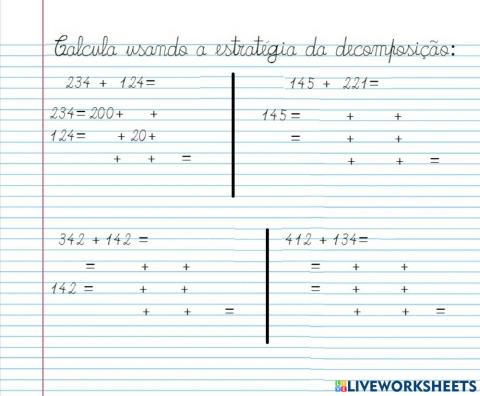 Calcula usando a estratégia da decomposição:
234 + 124=
234= 200+ +
124= + 20+
+ + =
145 + 221=
145= + +
= + +
+ + =
342 + 142 =
= + +
142 = + +
+ + =
412 + 134=
= + +
= + +
+ + =
LIVEWORKSHEETS